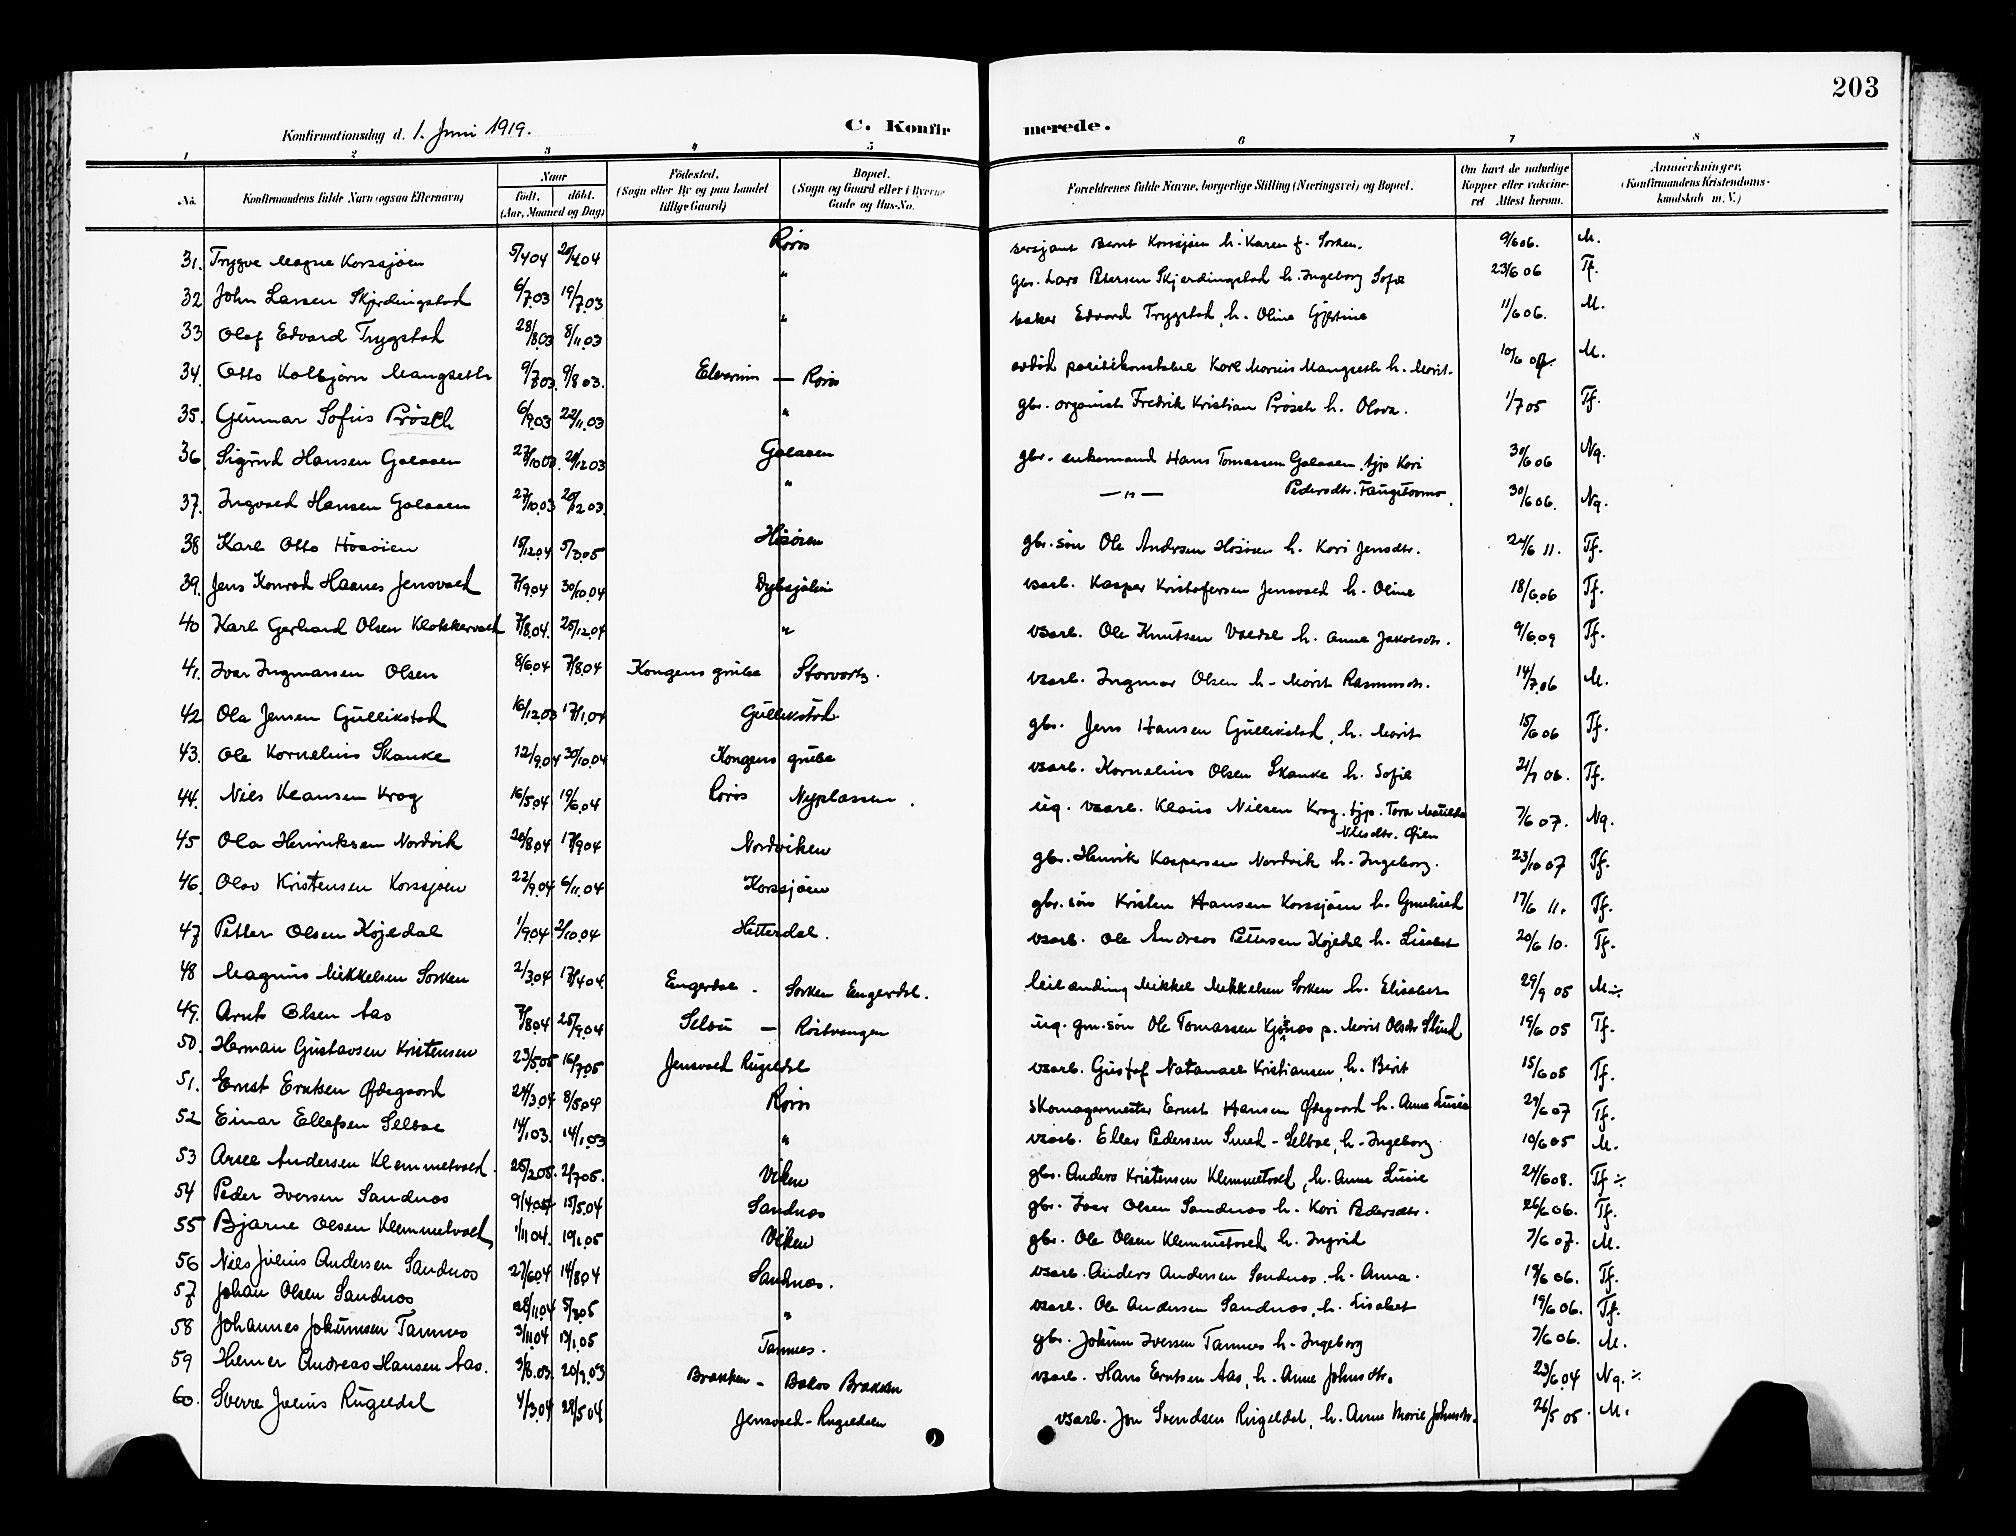 203
Konfirmationsdag d. 1. Juni 1919. C. Konfir merede.
1 2 3 4 5 6 7 8
No. Konfirmandens fulde Navn (ogsaa Efternavn) Naar født. døbt. (Aar, Maaned og Dag) Fødested. (Sogn eller By og paa Landet tillige Gaard) Bopæl. (Sogn og Gaard eller i Byerne Gade og Hus-No. Forældrenes fulde Navne, borgerlige Stilling (Næringsvei) og Bopæl. Om havt de naturlige Kopper eller vaccineret Attest herom. Anmærkninger. (Konfirmandens Kristendomskundskab m. V.)
31. Trygve Magne Korssjøen 5/4 04 20/4 04 Røros sersjant Bernt Korssjøen h. Karen f. Sorken. 9/6 06. M.
32 John Larsen Skjerdingstad 6/7.03 19/7.03 " gbr. Lars Petersen Skjerdingstad h. Ingeborg Sofie 23/6 06 Tf.
33 Olaf Edvard Trygstad 28/8.03 8/11.03 " baker Edvard Trygstad, h. Oline 11/6 06. M.
34. Otto Kolbjørn Mangseth 9/7.03. 9/8 03. Elverum — Røros avdød politikonstabel Karl Morius Mangseth h. Marit. 10/6 M.
35. Gunnar Sofus Prösch 6/9.03 22/11.03 " gbr. organist Fredrik Kristian Prösch h. Olava. 1/7 05 Tf.
36. Sigurd Hansen Galaaen 27/10.03 20/12 03 Galaaen gbr. enkemand Hans Tomassen Galaaen, tjp Kari 30/6 06 Ng.
Pedersdtr. Faugstovmo.
37. Ingvald Hansen Galaaen 27/10.03 20/12 03. " — " — 30/6 06. Ng.
38 Karl Otto Hösöien 15/12.04 5/3.05 Hösöien gbr. søn Ole Andersen Hösöien h. Kari Jensdtr. 24/6 11. Tf.
39. Jens Konrad Haanes Jensvold 7/9.04 30/10.04 Djupsjølien vsarb. Kasper Kristofersen Jensvold h. Oline 18/6.06 Tf.
40 Karl Gerhard Olsen Klokkervold 7/8.04. 25/12.04 " vsarb. Ole Knutsen h. Anna Jakobsdtr. 9/6.09 Tf.
41. Ivar Ingmarsen Olsen 8/6.04 7/8.04 Kongens grube Storvarts. vsarb. Ingmar Olsen h. Marit Rasmusdtr. 14/7.06 M.
42 Ola Jensen Gullikstad 16/12.03 17/1.04 Gullikstad gbr. Jens Hansen Gullikstad, h. Marit 15/6 06 Tf.
43. Ole Kornelius Skanke 12/9.04 30/10.04 Kongens grube vsarb. Kornelius Olsen Skanke h. Sofie 21/7 06. Tf.
44. Nils Klausen Krog 16/5.04 19/6.04 Røros Nyplassen. ug. vsarb. Klaus Nilsen Krog. tjp. Tora Matilda 7/6 07. Ng.
Nilsdtr. Øien
45 Ola Henriksen Nordvik 20/8.04 17/9 04 Nordviken gbr. Henrik Kaspersen Nordvik h. Ingeborg. 23/10 07 Tf.
46. Olav Kristensen Korssjøen 22/9.04 6/11.04 Korssjøen gbr. søn Kristen Hansen Korssjøen h. 17/6 11. Tf.
47 Petter Olsen Kojedal 1/9.04 2/10.04 Hitterdal. vsarb. Ole Andreas Pettersen Kojedal h. Lisabet 20/6 10. Tf.
48 Magnus Mikkelsen Sorken 2/3.04 17/4 04 Engerdal. Sorken Engerdal. leilænding Mikkel Mikkelsen Sorken h. Elisabet 29/9 05 M ÷
49. Arnt Olsen Aas 7/8.04 25/9.04 Selbu — Röstvangen ug. gm. søn Ole Tomassen Kjönaas p. Marit Olsdtr. Stind 19/6 05 Tf.
50. Herman Gustavsen Kristensen 23/5.05 16/7.05 Jensvold Rugeldal vsarb. Gustaf Natanael Kristiansen, h. Birit 15/6 05 Tf.
51. Ernst Erntsen Ødegaard 24/3.04 8/5.04 Røros skomagermester Ernst Hansen Ødegaard h. Anna Lusia 29/6 07 Tf.
52 Einar Ellefsen Selboe 14/1.03. 14/1.03 " vsarb. Ellev Pedersen Smed-Selboe, h. Ingeborg. 19/6 05 M.
53 Arild Andersen Klemmetvold. 25/2.05. 2/7 05. Viken gbr. Anders Kristensen Klemmetvold, h. Anna Lusie 24/6 08. Tf ÷
54 Peder Iversen Sandnes 9/4.04 15/5.04 Sandnes gbr. Ivar Olsen Sandnes h. Kari Pedersdtr. 26/6 06. Tf.
55 Bjarne Olsen Klemmetvold 1/11 04. 19/1.05 Viken gbr. Ole Olsen Klemmetvold h. Ingrid 7/6 07. M.
56 Nils Julius Andersen Sandnes 27/6.04 14/8.04 Sandnes. vsarb. Anders Andersen Sandnes. h. Anna. 19/6 06. Tf.
57 Johan Olsen Sandnes 28/11.04 5/3.05 " vsarb. Ole Andersen Sandnes, h. Lisabet 19/6 06. Tf.
58 Johannes Jokumsen Tamnes 3/11.04 15/1.05 Tamnes. gbr. Jokum Iversen Tamnes h. Ingeborg 7/6 06. M.
59 Hemer Andreas Hansen Aas. 3/8.03. 20/9.03 Brækken — Brækken vsarb. Hans Erntsen Aas, h. Anne Johnsdtr. 23/6.04 Ng. ÷
60. Sverre Julius Rugeldal 4/3.04 29/5 04 Jensvold-Rugeldalen vsarb. Jon Svendsen Rugeldal, h. Anne Marie Johnsdtr. 26/5 05. M.